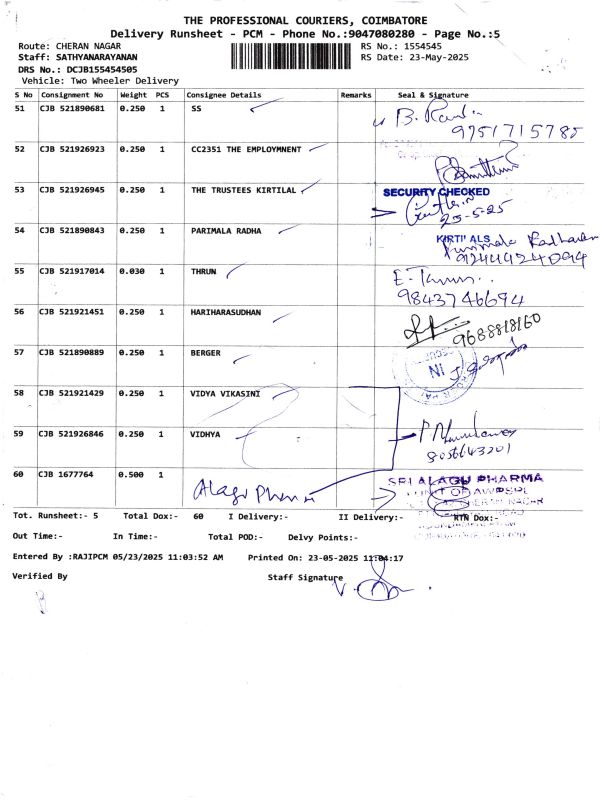 THE PROFESSIONAL COURIERS, COIMBATORE
Delivery Runsheet - PCM - Phone No.:9047080280 - Page No.:5
Route: CHERAN NAGAR RS No.: 1554545
Staff: SATHYANARAYANAN RS Date: 23-May-2025
DRS No.: DCJB155454505
Vehicle: Two Wheeler Delivery
S No Consignment No Weight PCS Consignee Details Remarks Seal & Signature
51 CJB 521890681 0.250 1 SS
9751715785
52 CJB 521926923 0.250 1 CC2351 THE EMPLOYMNENT
53 CJB 521926945 0.250 1 THE TRUSTEES KIRTILAL SECURITY CHECKED
23-5-25
54 CJB 521890843 0.250 1 PARIMALA RADHA
9244424094
55 CJB 521917014 0.030 1 THRUN
9843746694
56 CJB 521921451 0.250 1 HARIHARASUDHAN
9688818160
57 CJB 521890889 0.250 1 BERGER IN
58 CJB 521921429 0.250 1 VIDYA VIKASINI
59 CJB 521926846 0.250 1 VIDHYA
8056643201
60 CJB 1677764 0.500 1 Alagu Pharma SRI ALAGU PHARMA
Tot. Runsheet:- 5 Total Dox:- 60 I Delivery:- II Delivery:- RTN Dox:-
Out Time:- In Time:- Total POD:- Delvy Points:-
Entered By :RAJIPCM 05/23/2025 11:03:52 AM Printed On: 23-05-2025 11:04:17
Verified By Staff Signature